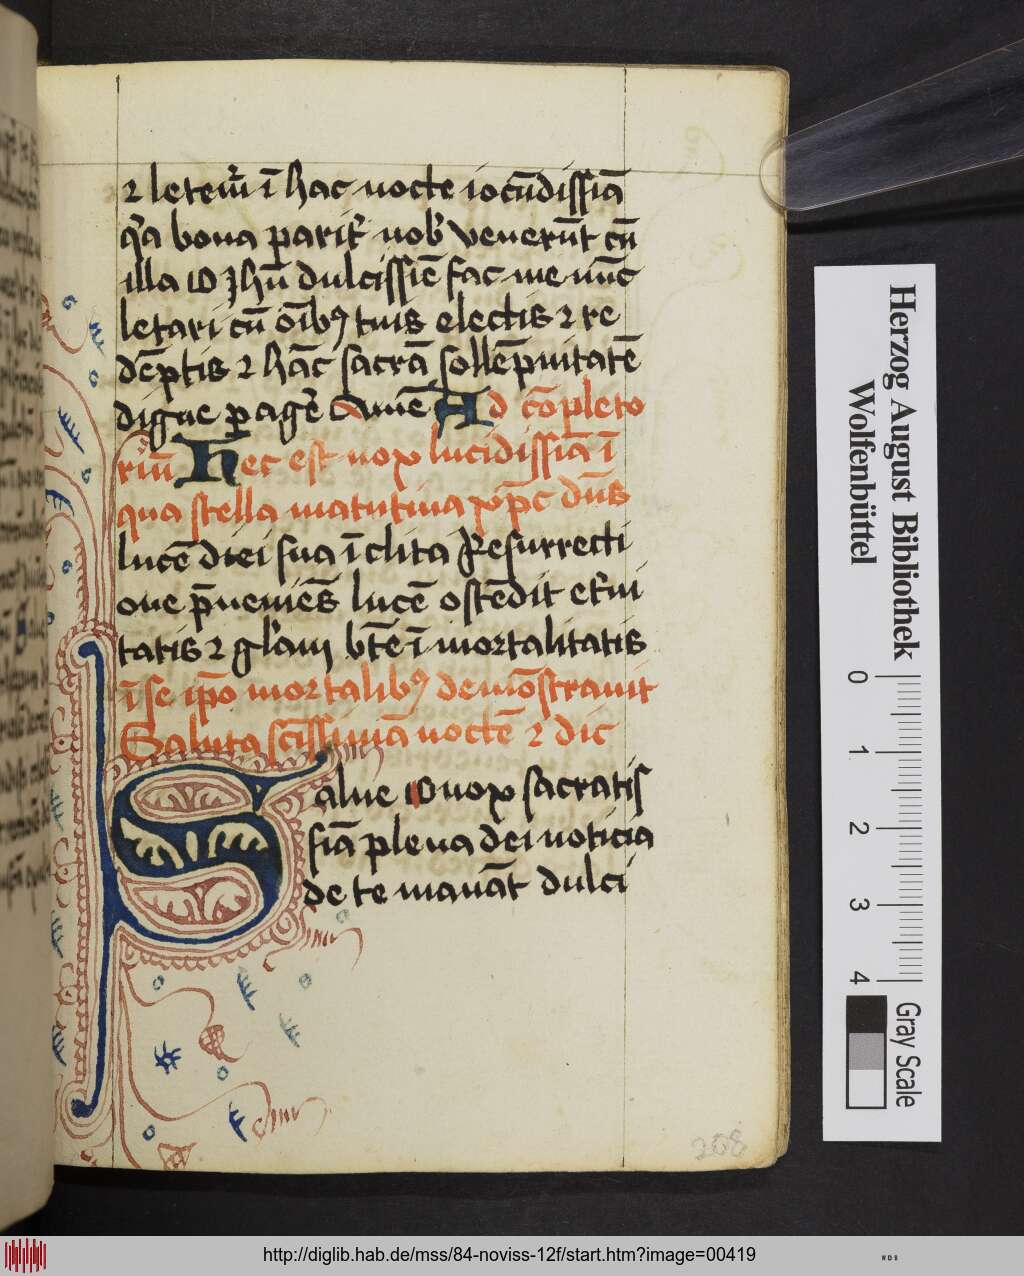 ⁊ letem̄ ī hac nocte iocūdissiā
qͣa bona parit᷑ nob̉ venerūt cū
illa O Jhū dulcissīe fac me nūc
letari cū oībꝰ tuis electis ⁊ re
dēptis ⁊ hāc sacrā sollēpnitatē
digne ꝑ ager̄ Amē Ad cōpleto
riū Hec est nox lucidissīa ī
qua stella matutina xp̄c dn̄s
lucē diei sua īclita Resurrecti
one p̄ueniēs lucē ostēdit et̉ni
tatis ⁊ gl̉am bt̄e īmortalitatis
ī se ip̄o mortalibꝰ demōstrauit
Saluta sc̄issimā noctē ⁊ dic
Salue O nox sacratis
siā plena dei noticia
de te manāt dulci
208
Herzog August Bibliothek
Wolfenbüttel
0 1 2 3 4
Gray Scale
http://diglib.hab.de/mss/84-noviss-12f/start.htm?image=00419